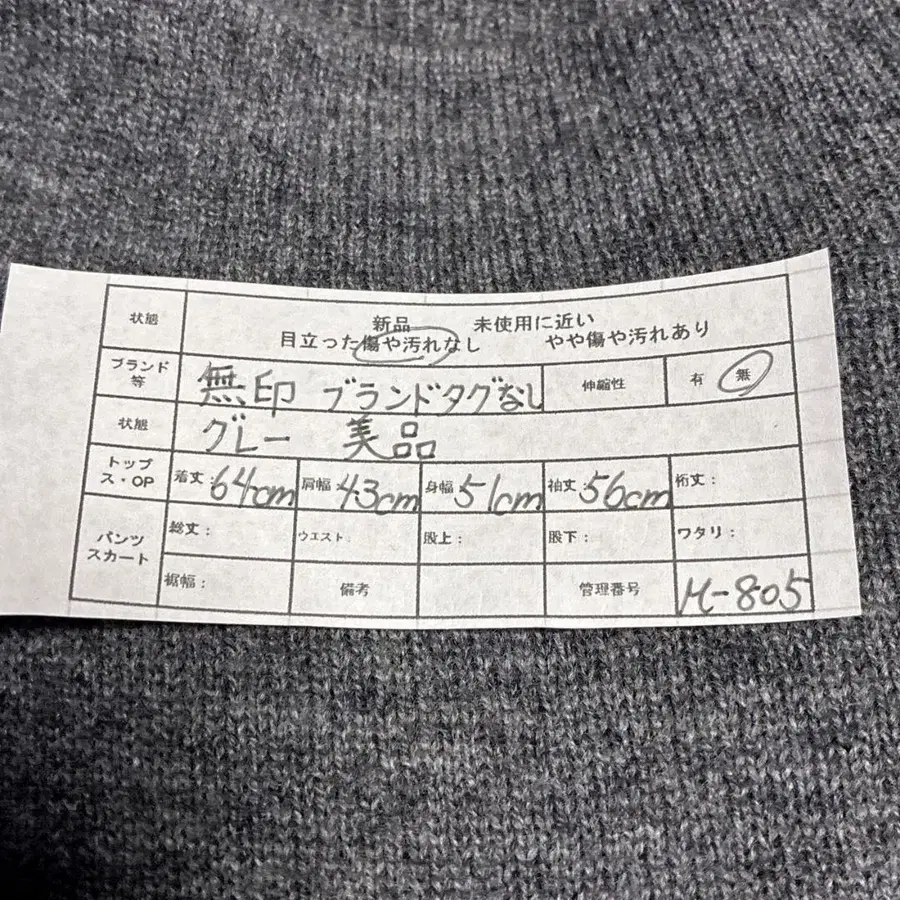 状態 新品 未使用に近い
目立った傷や汚れなし やや傷や汚れあり
ブランド等 無印 ブランドタグなし 伸縮性 有 無
状態 グレー 美品
トップス・OP 着丈:64cm 肩幅:43cm 身幅:51cm 袖丈:56cm 桁丈:
パンツ スカート 総丈: ウエスト: 股上: 股下: ワタリ:
裾幅: 備考 管理番号 H-805